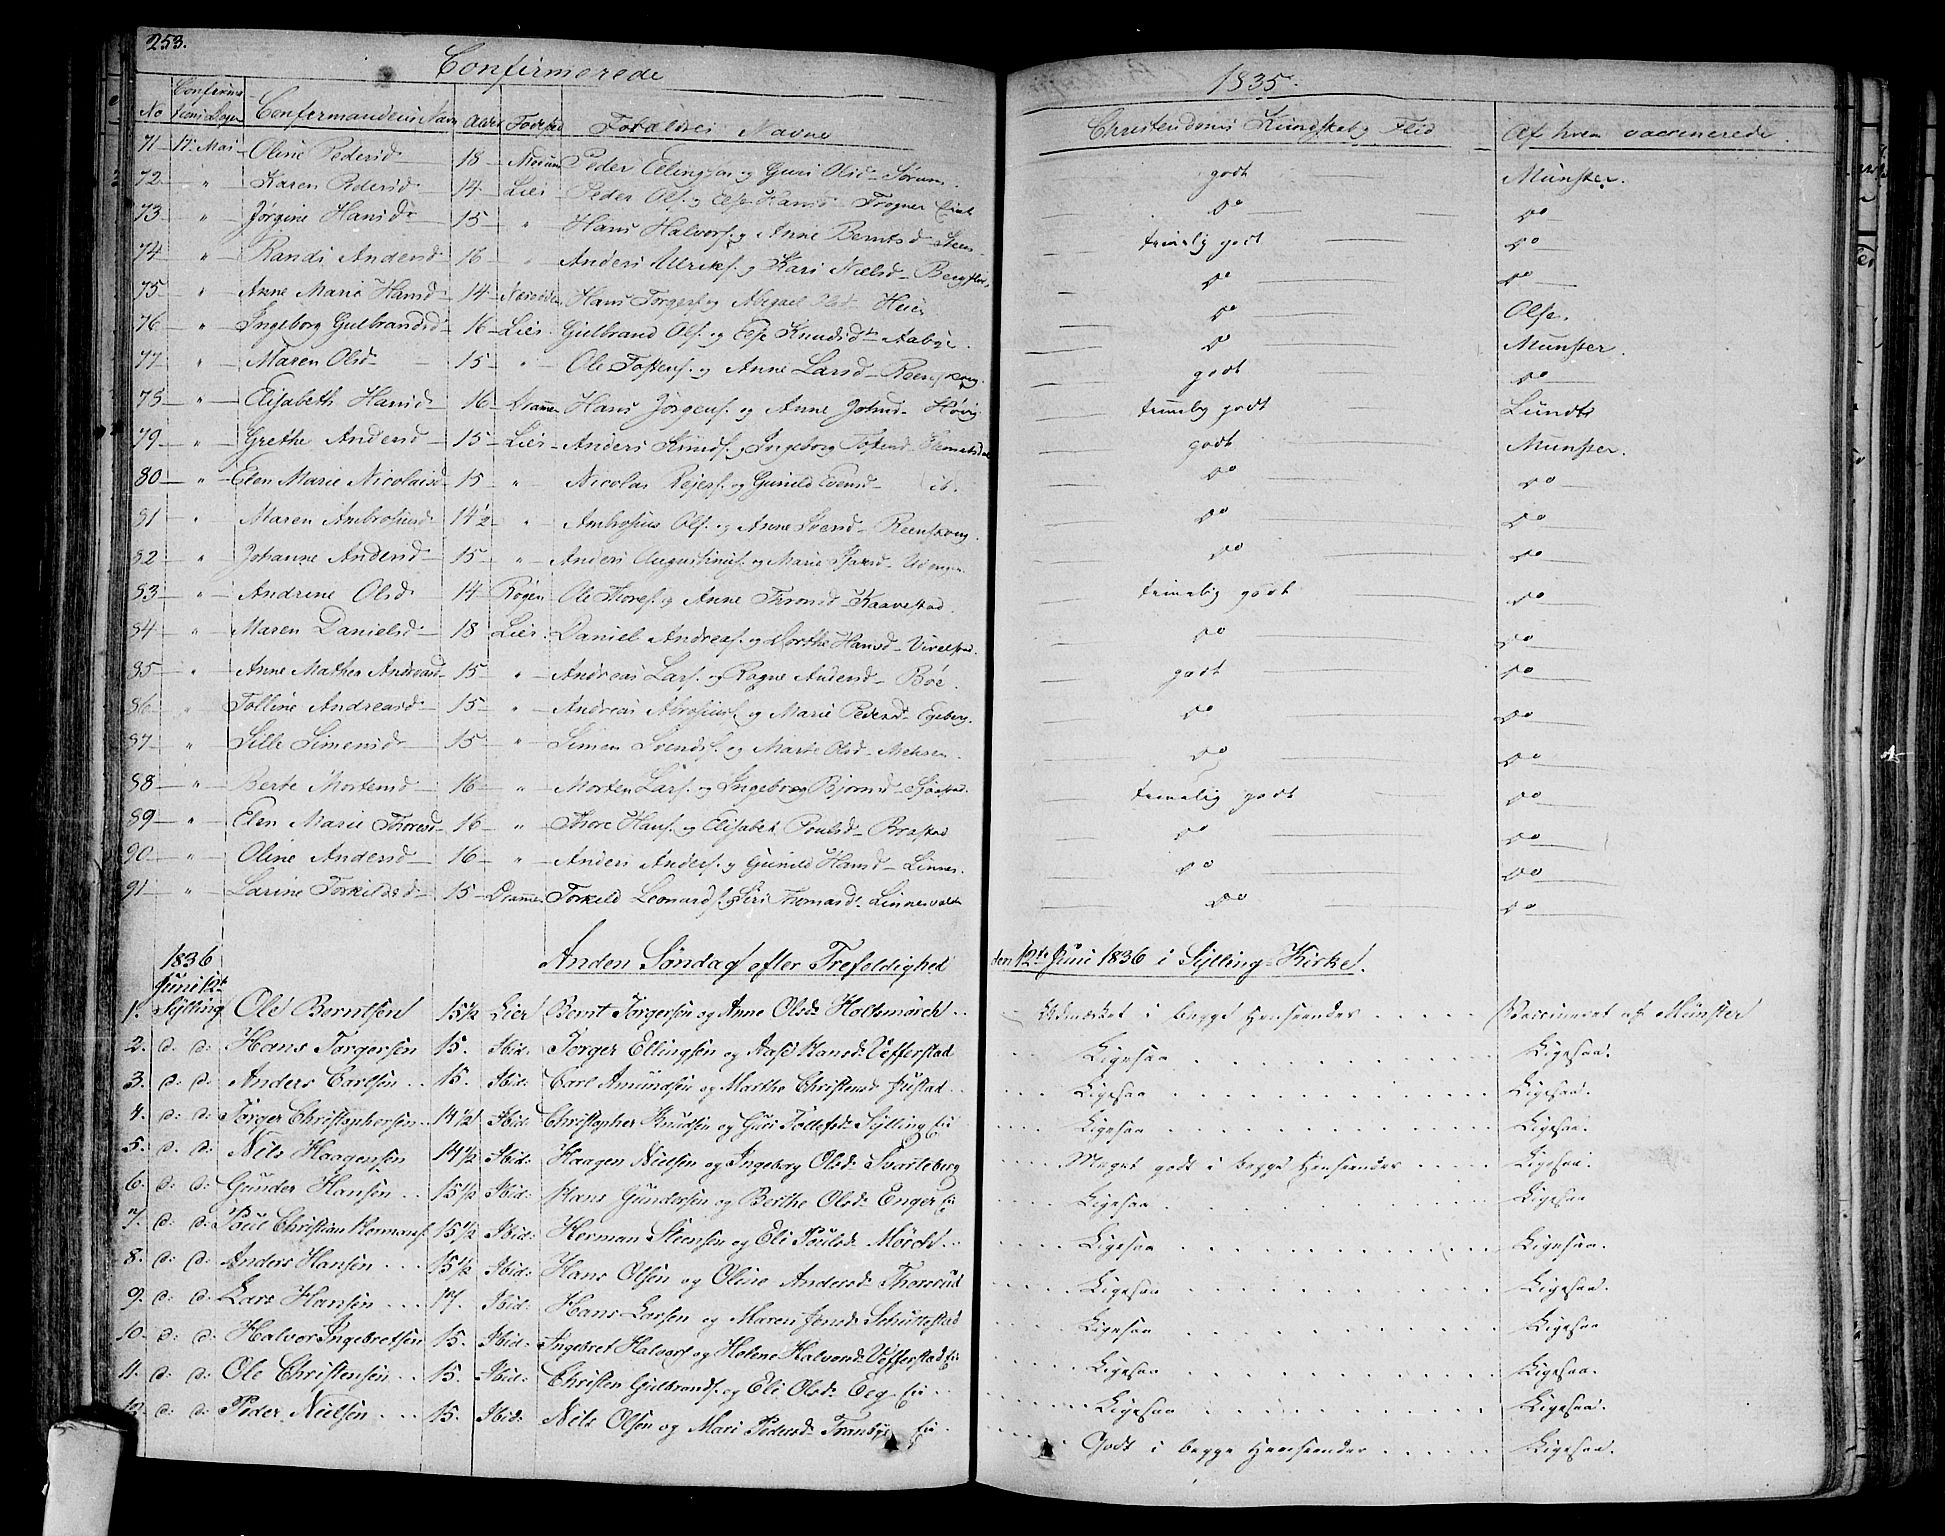 253.
Confirmerede 1835.
No Confirmations Dagen Confirmandens Navn Alder Fødested Forældres Navne Christendoms Kundskab og Flid Af hvem vaccinerede
71 17 Mai Oline Pedersd 18 Peder Ellingsen og Guri Olsd Sørum godt Munster.
72 " Karen Pedersd 14 Lier Peder Ols. og Else Hansd Frogner Eie do do
73 " Jørgine Hansd 15 " Hans Halvors. og Anne Berntsd temelig godt do
74 " Randi Andersd 16 " Anders Ulriks. og Kari Nielsd do do
75 " Anne Marie Hansd 14 Hans Torgers. og Abigael Olsd do Olse.
76 " Ingeborg Gulbrandsd 16 Lier Gulbrand Ols. og Else Knudsd Aabye. do Munster.
77 " Maren Olsd 15 " Ole Tostens. og Anne Larsd Reenskoug. godt do
78 " Elisabeth Hansd 16 Drammen Hans Jørgens. og Anne Johnsd Høvig temelig godt Lundt
79 " Grethe Andersd 15 Lier Anders Knuds. Ingeborg Tostensd godt Munster.
80 " Elen Marie Nicolaisd 15 " Nicolai Rejers. og Gunild Evensd ib. do do
81 " Maren Ambrosiusd 14½ " Ambrosius Ols. og Anne Iversd Reenskoug. do do
82 " Johanne Andersd 15 " Anders Augustinus. og Marie do do
83 " Andrine Olsd 14 Røgen Ole Thores. og Anne Tronsd Kaavestad. temelig godt do
84 " Maren Danielsd 18 Lier Daniel Andreas. og Dorthe Hansd Vivelstad. do do
85 " Anne Mathea Andreasd 15 " Andreas Lars. og Ragne Andersd Bøe. godt do
86 " Tolline Andreasd 15 " Andreas Abrosius. og Marie Pedersd Egeberg. do do
87 " Sille Simensd 15 " Simen Svends. og Marte Olsd Mehren. do do
88 " Berte Mortensd 16 " Morten Lars. og Ingeborg Bjørnsd Sjøstad. temelig godt do
89 " Elen Marie Thoresd 16 " Thore Hans. og Elisabet Poulsd Brastad do do
90 " Oline Andersd 16 " Anders Anders. og Gunild Hansd Linnes. do do
91 " Larine Torkildsd 15 Drammen Torkeld Leonards. og Siri Thomasd. Linnesvald do do
1836 Juni 12t Anden Søndag efter Trefoldighed den 12te Juni 1836 i Sylling-Kirke.
1. Sylling Ole Berntsen 15½ Lier Bernt Torgersen og Anne Olsd: Holtsmörch Udmærket i begge Henseender Vaccineret af Münster
2. d: d: Hans Torgersen 15. Ibid: Torger Ellingsen og Aase Hansd: Vefferstad Ligesaa Ligesaa.
3. d: d: Anders Carlsen 15. Ibid: Carl Amundsen og Marthe Christensd Justad Ligesaa Ligesaa.
4. d: d: Torger Christophersen 14½ Ibid: Christopher Knudsen og Guri Tollefsd: Sylling Ei: Ligesaa Ligesaa.
5. d: d: Nils Haagensen 14½ Ibid: Haagen Nielsen og Ingeborg Olsd: Svarteberg Meget godt i begge Henseender Ligesaa.
6. d: d: Gunder Hansen 15½ Ibid: Hans Gundersen og Berthe Olsd: Enger Ei: Ligesaa Ligesaa
7. d: d: Poul Christian Hermans. 15½ Ibid: Herman Steensen og Eli Poulsd: Mörch Ligesaa Ligesaa.
8. d: d: Anders Hansen 15½ Ibid: Hans Olsen og Oline Andersd: Thorsrud Ligesaa Ligesaa.
9. d: d: Lars Hansen 17. Ibid: Hans Larsen og Maren Jensd: Schuttestad Ligesaa Ligesaa
10. d: d: Halvor Ingebretsen 15. Ibid: Ingebret Halvors. og Helene Halvorsd: Vefferstad Ei: Ligesaa Ligesaa.
11. d: d: Ole Christensen 15. Ibid: Christen Gulbrands. og Eli Olsd: Eeg Ei: Ligesaa Ligesaa.
12. d: d: Peder Nielsen 15. Ibid: Nils Olsen og Mari Pedersd: Tranbye Ei: Godt i begge Henseender Ligesaa.